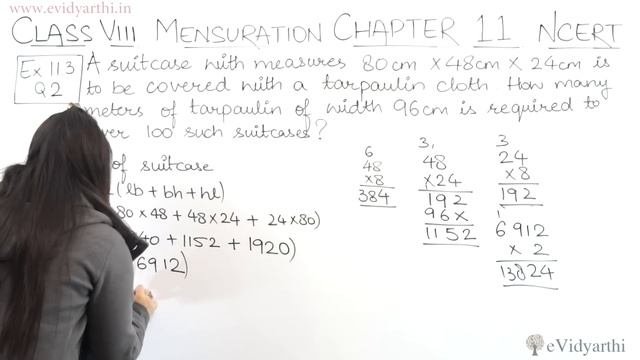 www.evidyarthi.in
CLASS VIII MENSURATION CHAPTER 11 NCERT
Ex 11.3
Q2
A suitcase with measures 80cm × 48cm × 24cm is
to be covered with a tarpaulin cloth. How many
meters of tarpaulin of width 96cm is required to
100 such suitcases?
of suitcase
(lb + bh + hl)
80 × 48 + 48 × 24 + 24 × 80)
40 + 1152 + 1920)
6912)
6
48
×8
384
3,
48
×24
192
96×
1152
3
24
×8
192
1
6912
× 2
13824
eVidyarthi